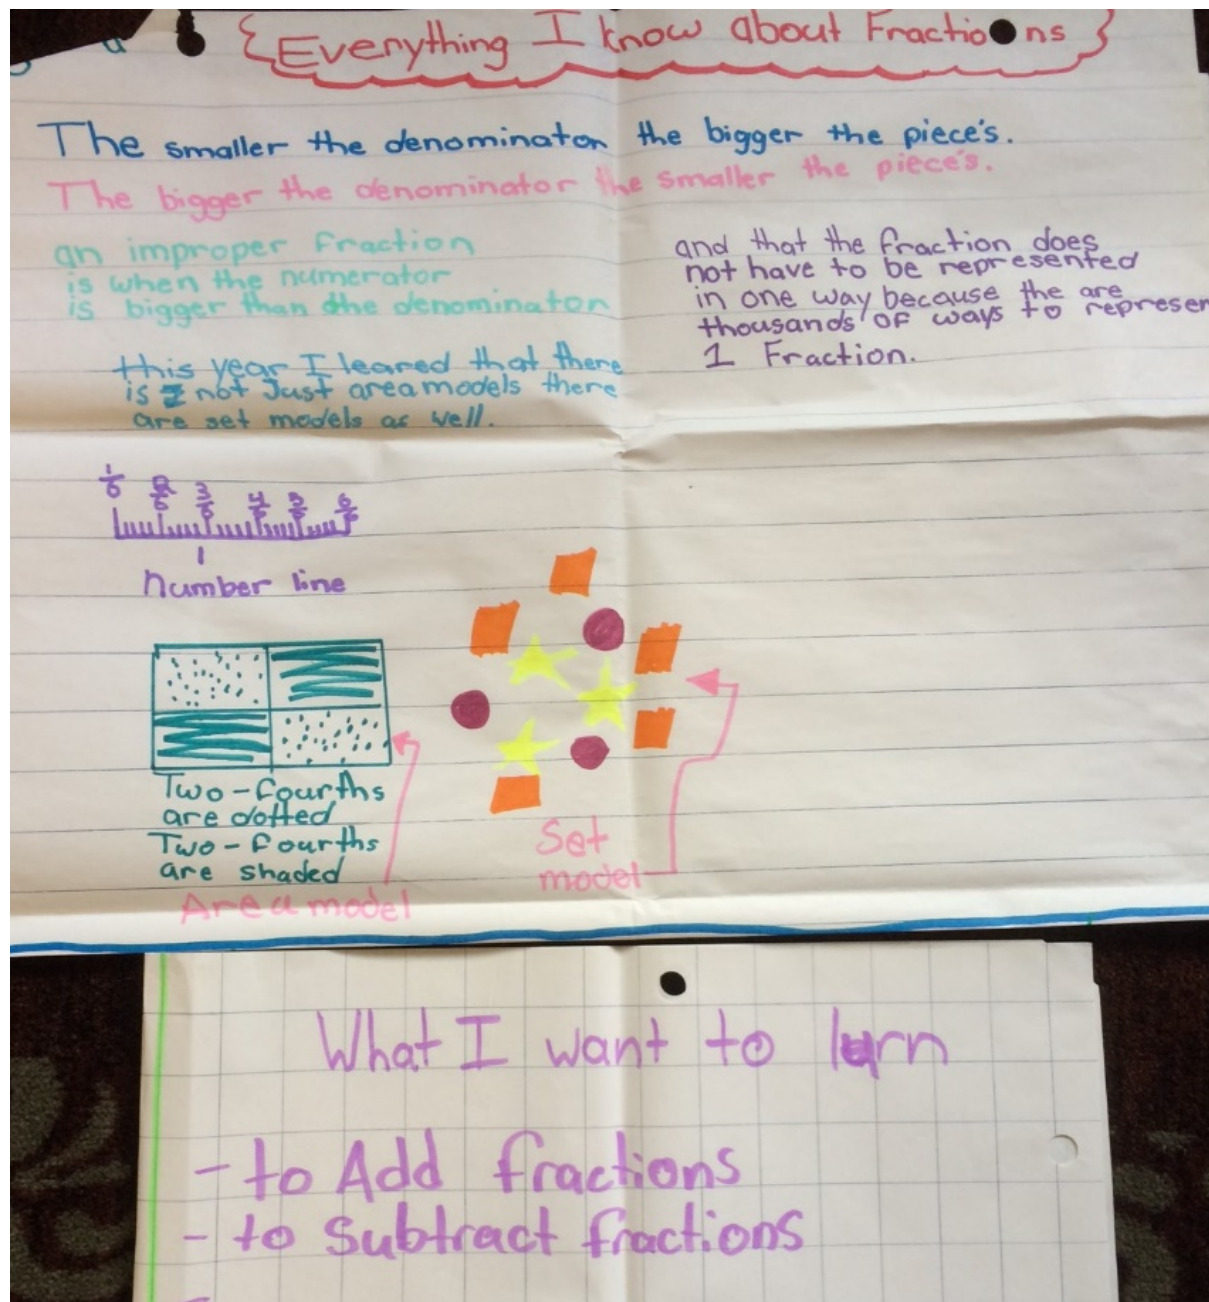 Everything I know about Fractions
The smaller the denominator the bigger the piece's.
The bigger the denominator the smaller the piece's.
an improper fraction
is when the numerator
is bigger than the denominator
this year I leared that there
is not Just area models there
are set models as well.
and that the fraction does
not have to be represented
in one way because the are
thousands of ways to represen
1 Fraction.
1/6 2/6 3/6 4/6 5/6 6/6
number line
Two-fourths
are dotted
Two-fourths
are shaded
Area model
Set
model
What I want to lurn
- to Add fractions
- to Subtract fractions